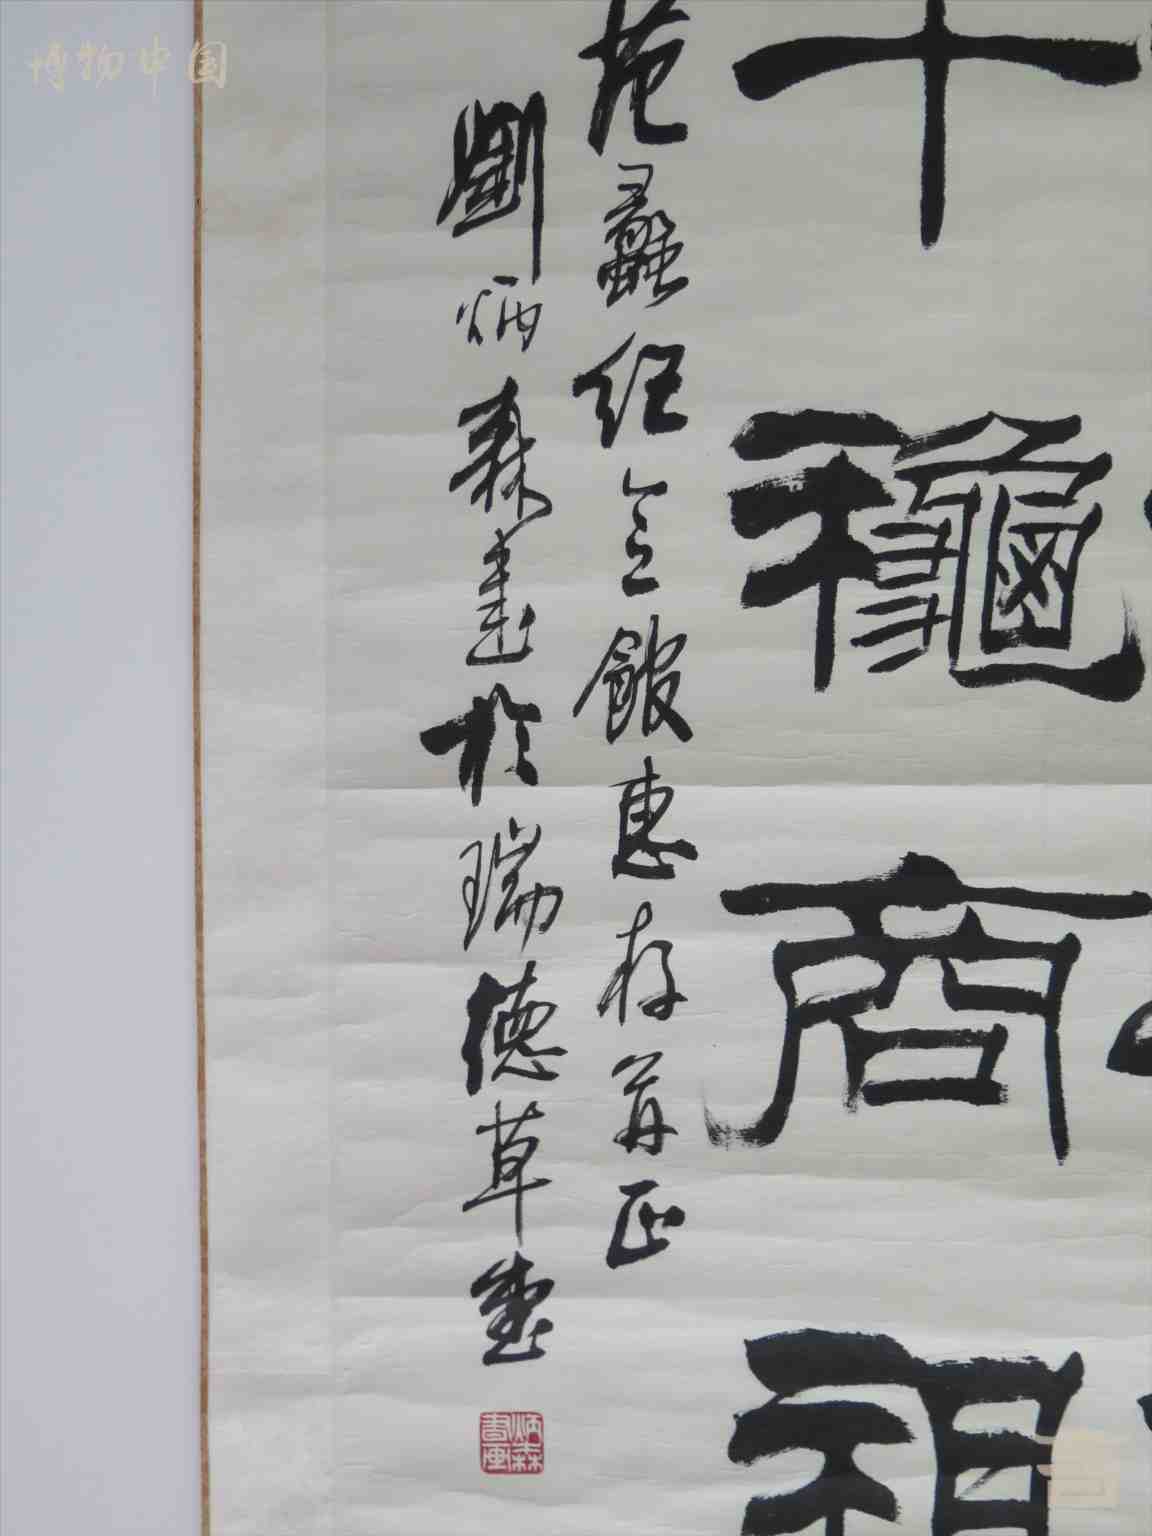 博物中国
千龝商祖
范蠡纪念館惠存并正
劉炳森書於瑞德草堂
炳森書画